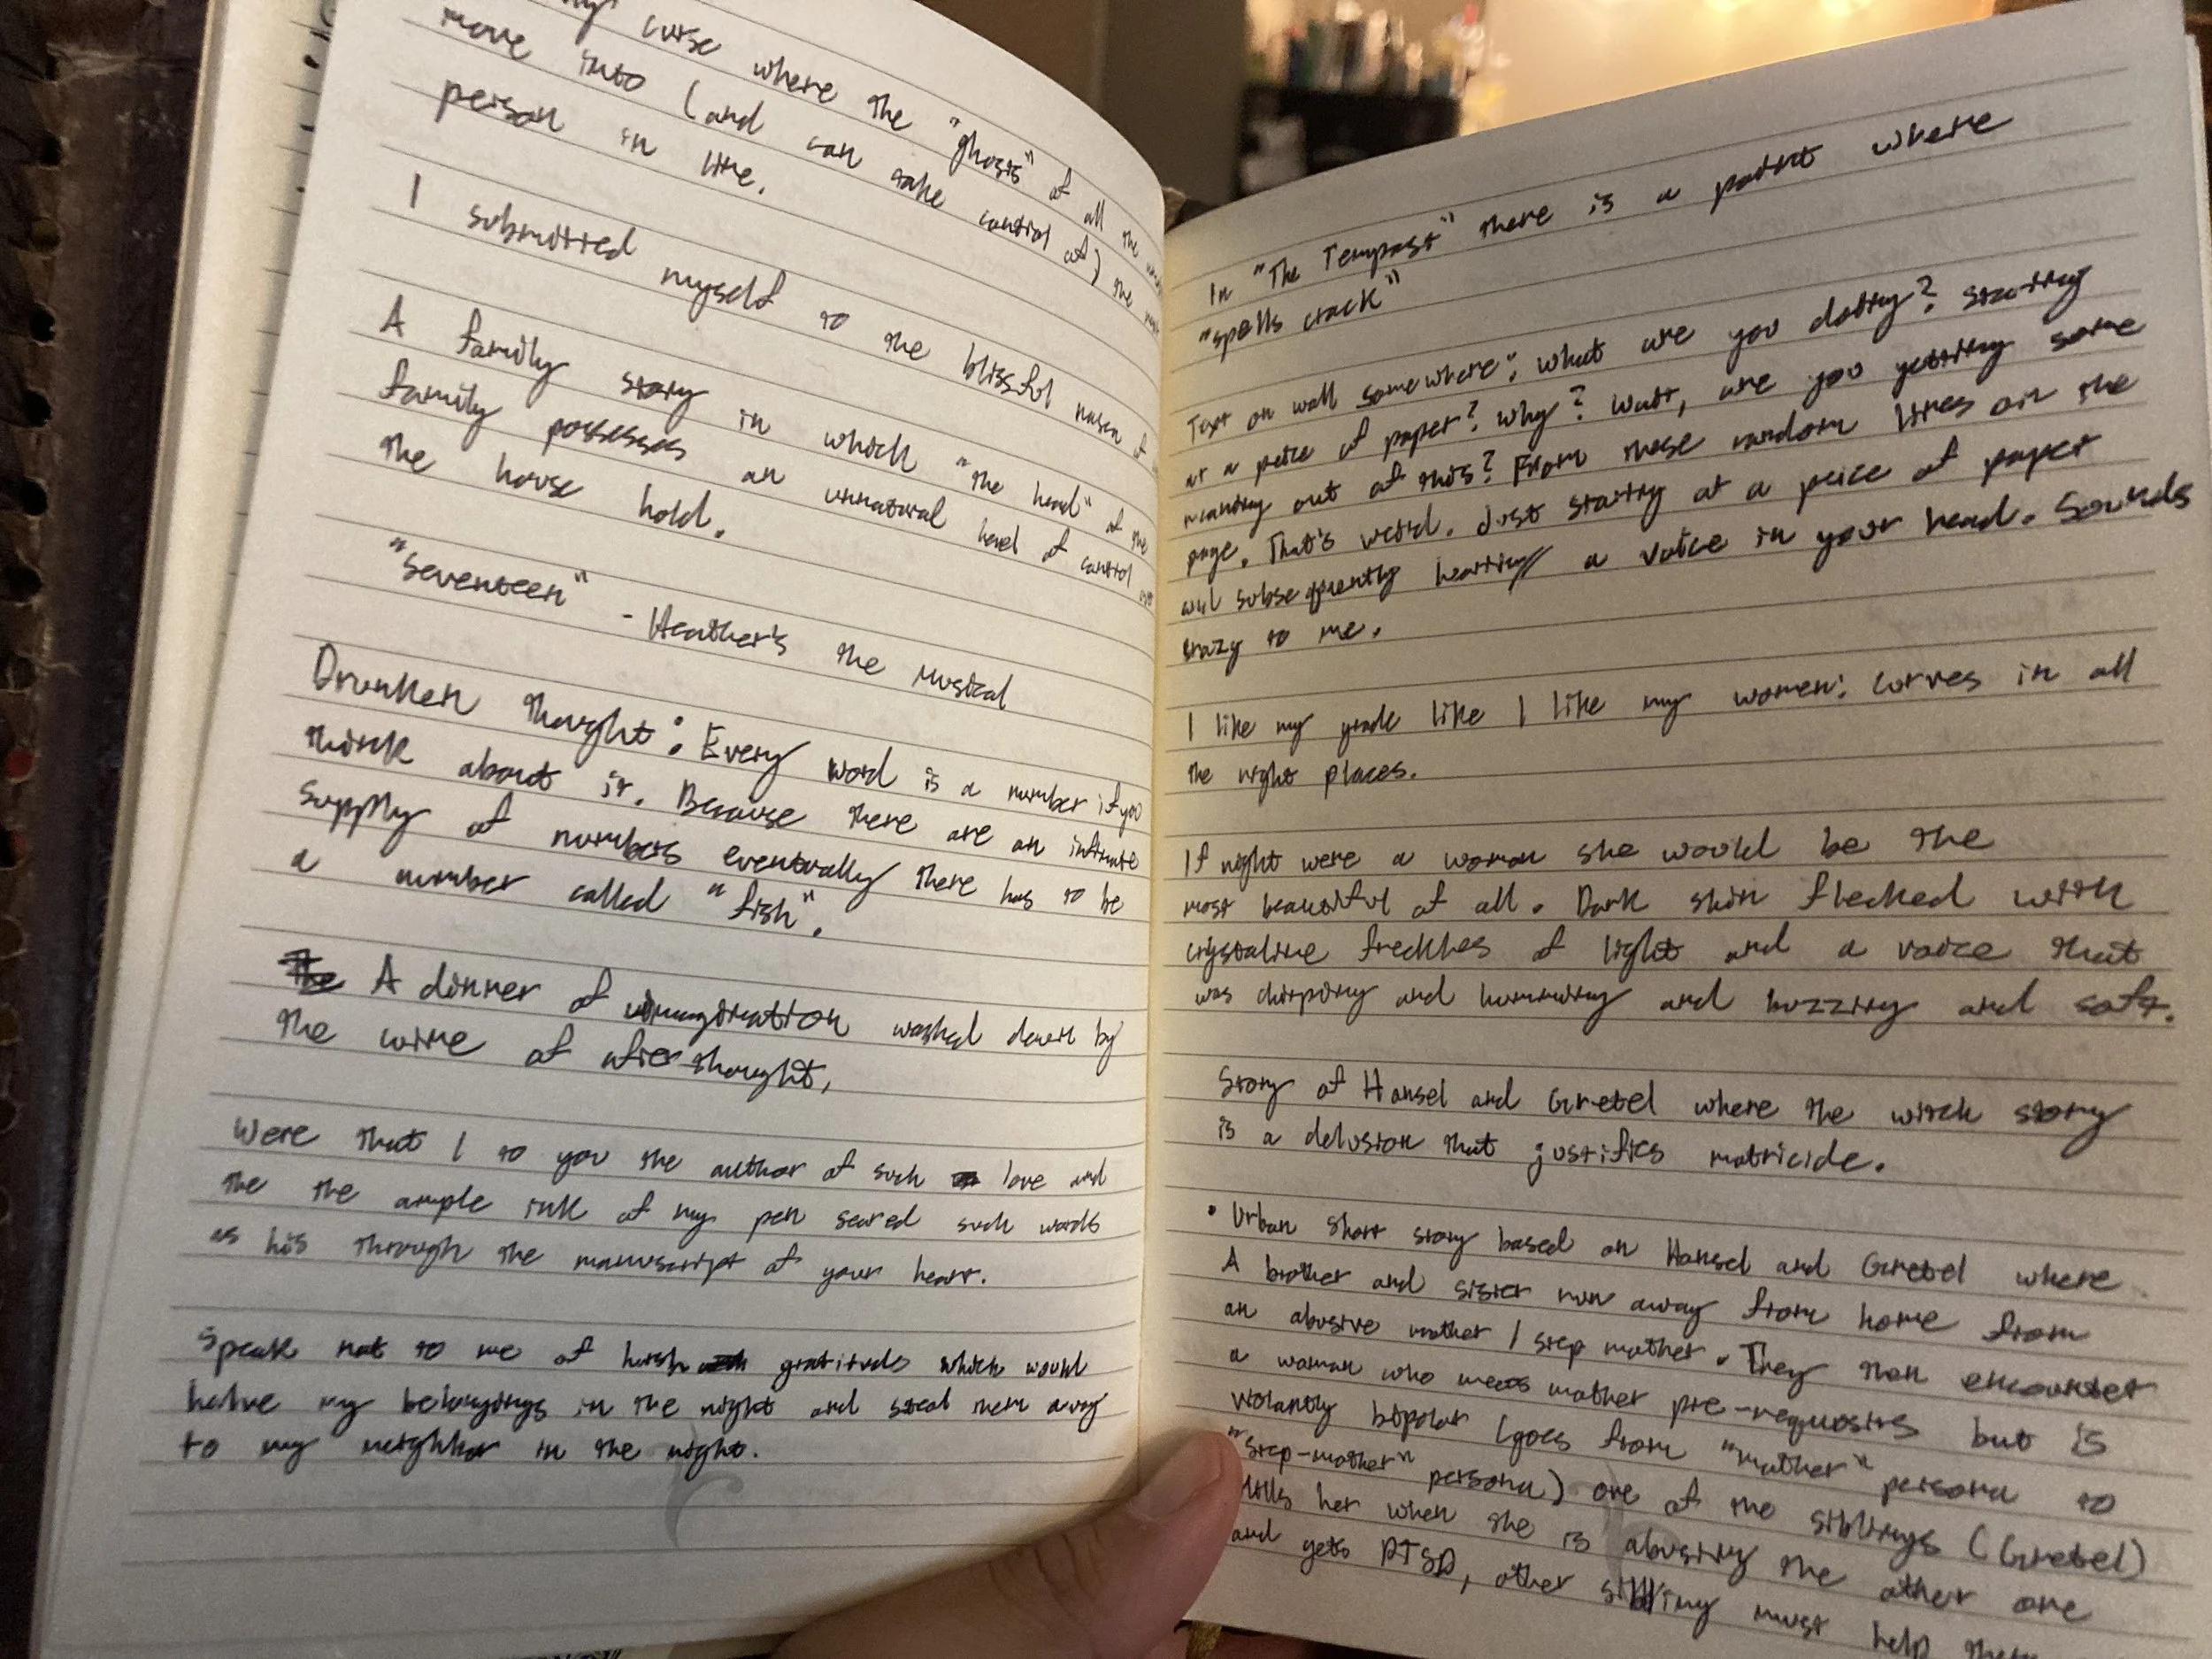 curse where the "ghosts" of all the
move into (and can take control of) the
person in line.
I submitted myself to the blissful
A family story in which "the head" of the
family possesses an unnatural level of control
the house hold.
"Seventeen" - Heather's the Musical
Drunken thought: Every word is a number if you
think about it. Because there are an infinite
supply of numbers eventually there has to be
a number called "fish".
A dinner of imagination washed down by
the wine of afterthought,
Were that I to you the author of such love and
the the ample ink of my pen seared such words
as his through the manuscript of your heart.
Speak not to me of harsh gratitude which would
halve my belongings in the night and steal them away
to my neighbor in the night.
In "The Tempest" there is a point where
"spells crack"
Text on wall somewhere: What are you doing? Staring
at a peice of paper? Why? Wait, are you getting some
meaning out of this? From these random lines on the
page. That's weird. Just staring at a peice of paper
and subsequently hearing a voice in your head. Sounds
crazy to me.
I like my grade like I like my women: curves in all
the right places.
If night were a woman she would be the
most beautiful of all. Dark skin flecked with
crystaline freckles of light and a voice that
was chirping and humming and buzzing and soft.
Story of Hansel and Gretel where the witch story
is a delusion that justifies matricide.
• Urban short story based on Hansel and Gretel where
A brother and sister run away from home from
an abusive mother / step mother. They then encounter
a woman who meets mother pre-requisits but is
violantly bipolar (goes from "mother" persona to
"Step-mother" persona) one of the siblings (Gretel)
kills her when she is abusing the other one
and gets PTSD, other sibling must help